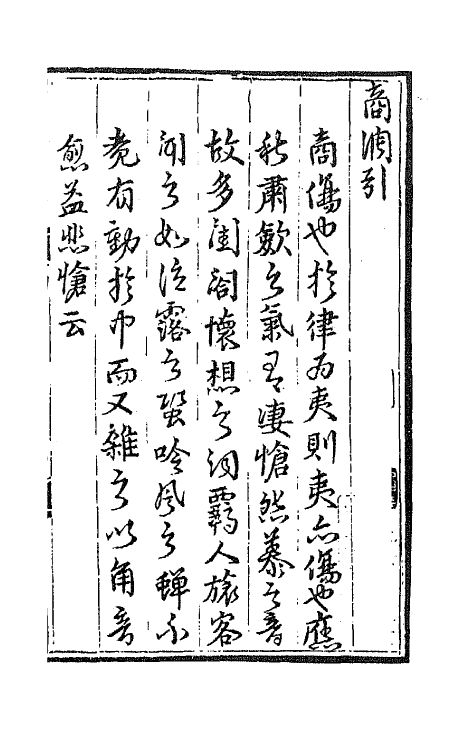 商調引
商傷也於律為夷則夷亦傷也應
秋肅歛之氣凄愴怨慕之音
故多閨閣懷想之詞羇人旅客
聞之如泣露之蛩吟風之蟬不
覺有動於中而又雜之以角音
愈益悲愴云